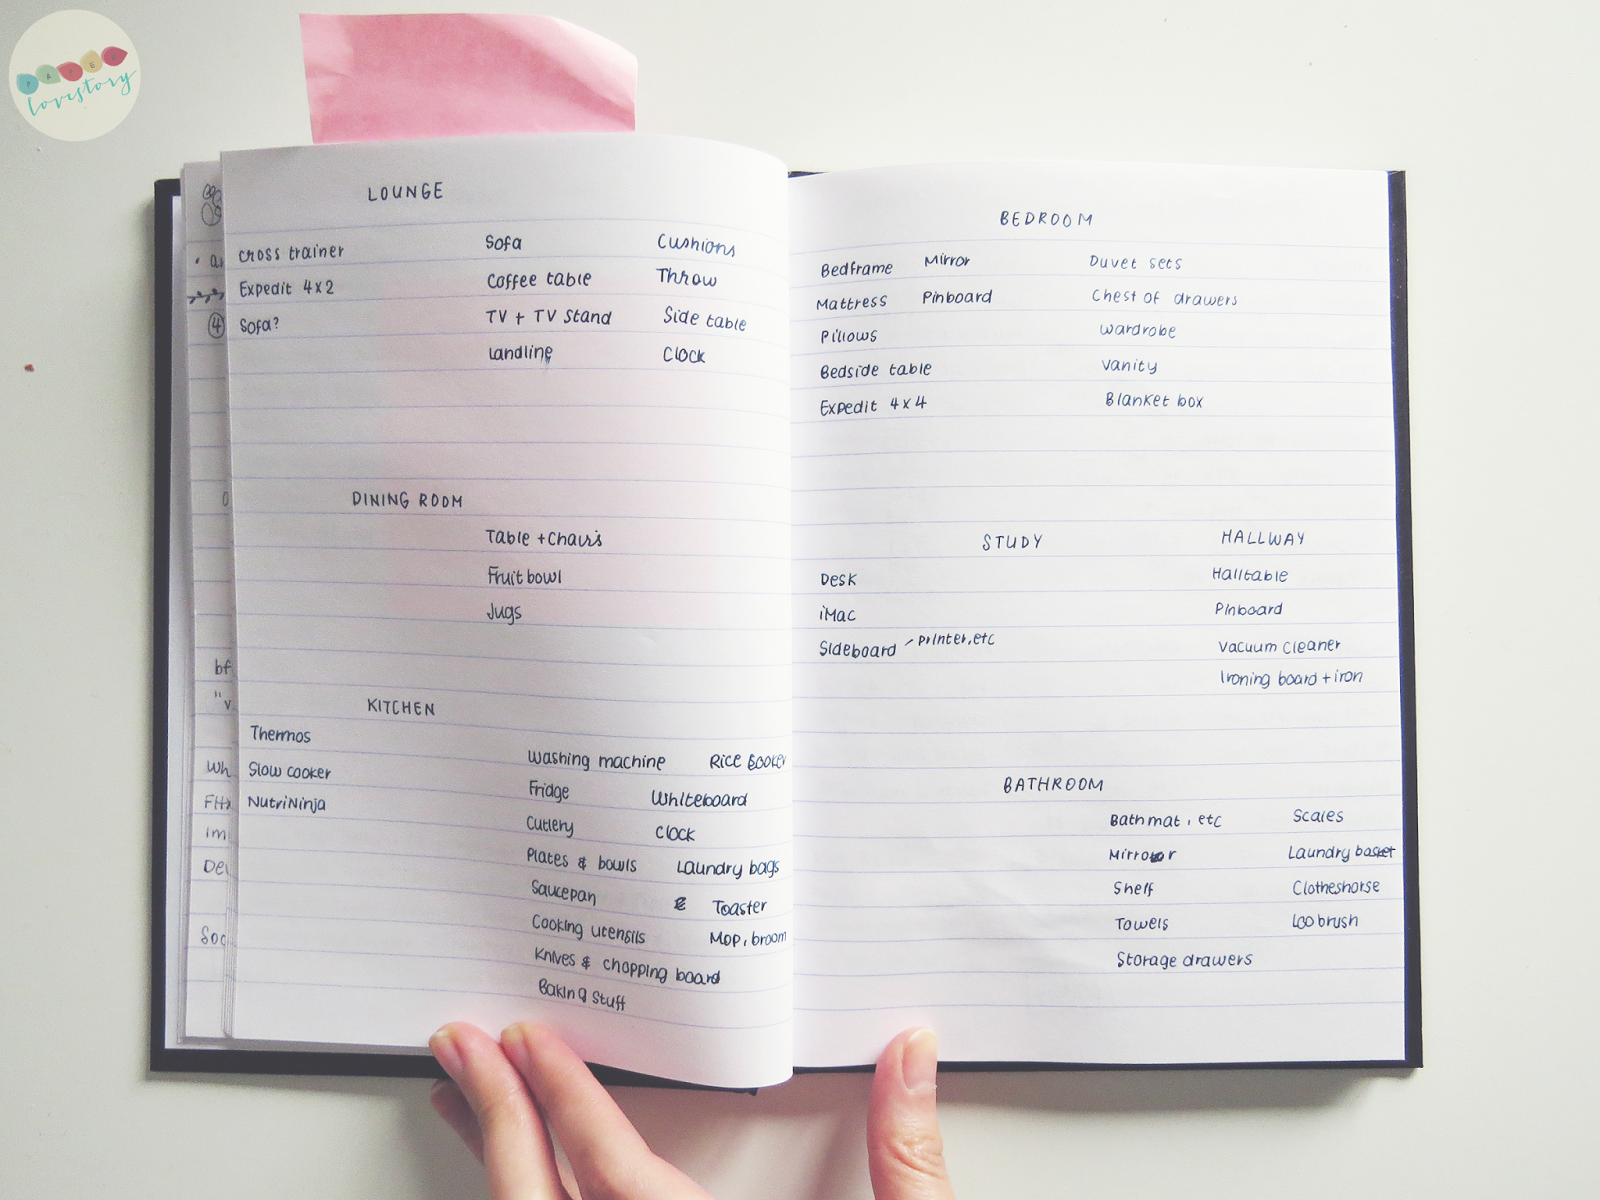 PAPER
lovestory
LOUNGE
cross trainer Sofa Cushions
Expedit 4x2 Coffee table Throw
Sofa? TV + TV Stand Side table
Landline Clock
DINING ROOM
Table + Chairs
Fruit bowl
Jugs
KITCHEN
Thermos
Slow cooker
NutriNinja
Washing machine Rice Cooker
Fridge Whiteboard
Cutlery Clock
Plates & bowls Laundry bags
Saucepan & Toaster
Cooking utensils Mop, broom
Knives & chopping board
Baking Stuff
BEDROOM
Bedframe Mirror Duvet sets
Mattress Pinboard Chest of drawers
Pillows Wardrobe
Bedside table Vanity
Expedit 4x4 Blanket box
STUDY
Desk
iMac
Sideboard - printer, etc
HALLWAY
Hall table
Pinboard
Vacuum cleaner
Ironing board + iron
BATHROOM
Bath mat, etc Scales
Mirror Laundry basket
Shelf Clotheshorse
Towels Loo brush
Storage drawers
4
bf
Wh
Im